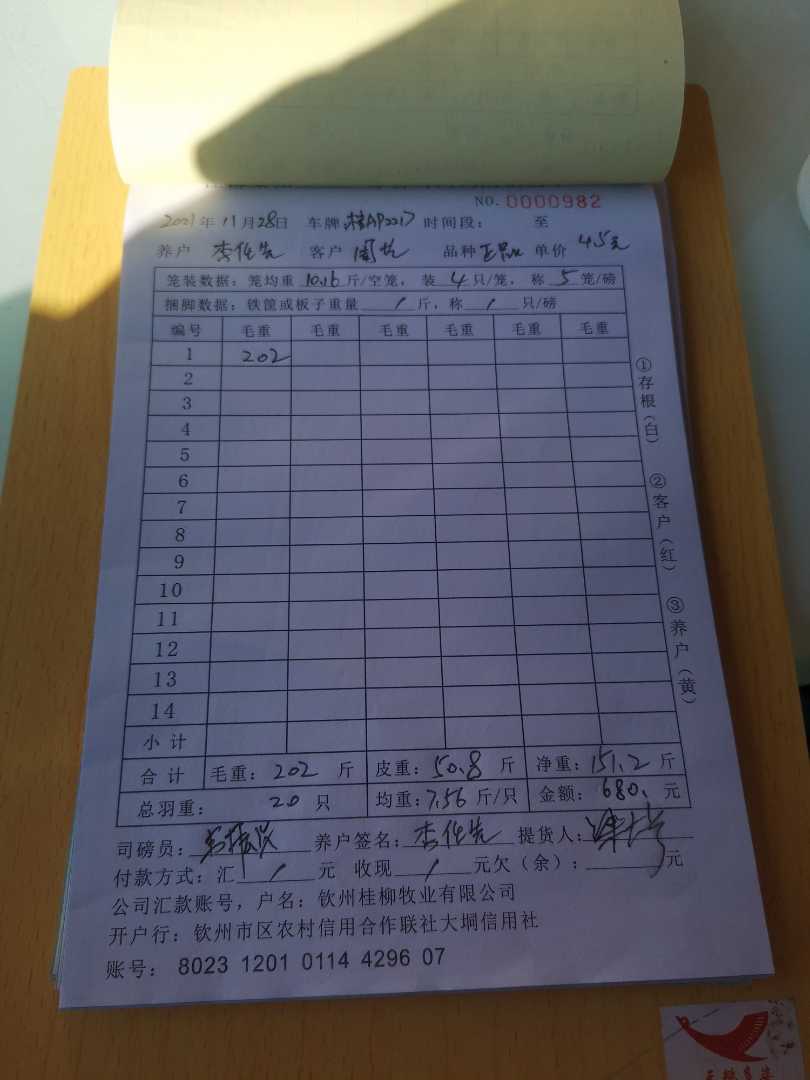 NO. 0000982
2021年 11月28日 车牌: 桂AP2217 时间段: 至
养户 李任先 客户 品种 单价 4.5元
笼装数据: 笼均重 10.16 斤/空笼, 装 4 只/笼, 称 5 笼/磅
捆脚数据: 铁筐或板子重量 / 斤, 称 / 只/磅
编号 毛重 毛重 毛重 毛重 毛重 毛重
1 202
2
3
4
5
6
7
8
9
10
11
12
13
14
小计
合计 毛重: 202 斤 皮重: 50.8 斤 净重: 151.2 斤
总羽重: 20 只 均重: 7.56 斤/只 金额: 680. 元
司磅员: 养户签名: 李任先 提货人:
付款方式: 汇 / 元 收现 / 元欠(余): 元
公司汇款账号, 户名: 钦州桂柳牧业有限公司
开户行: 钦州市区农村信用合作联社大垌信用社
账号: 8023 1201 0114 4296 07
①存根(白) ②客户(红) ③养户(黄)